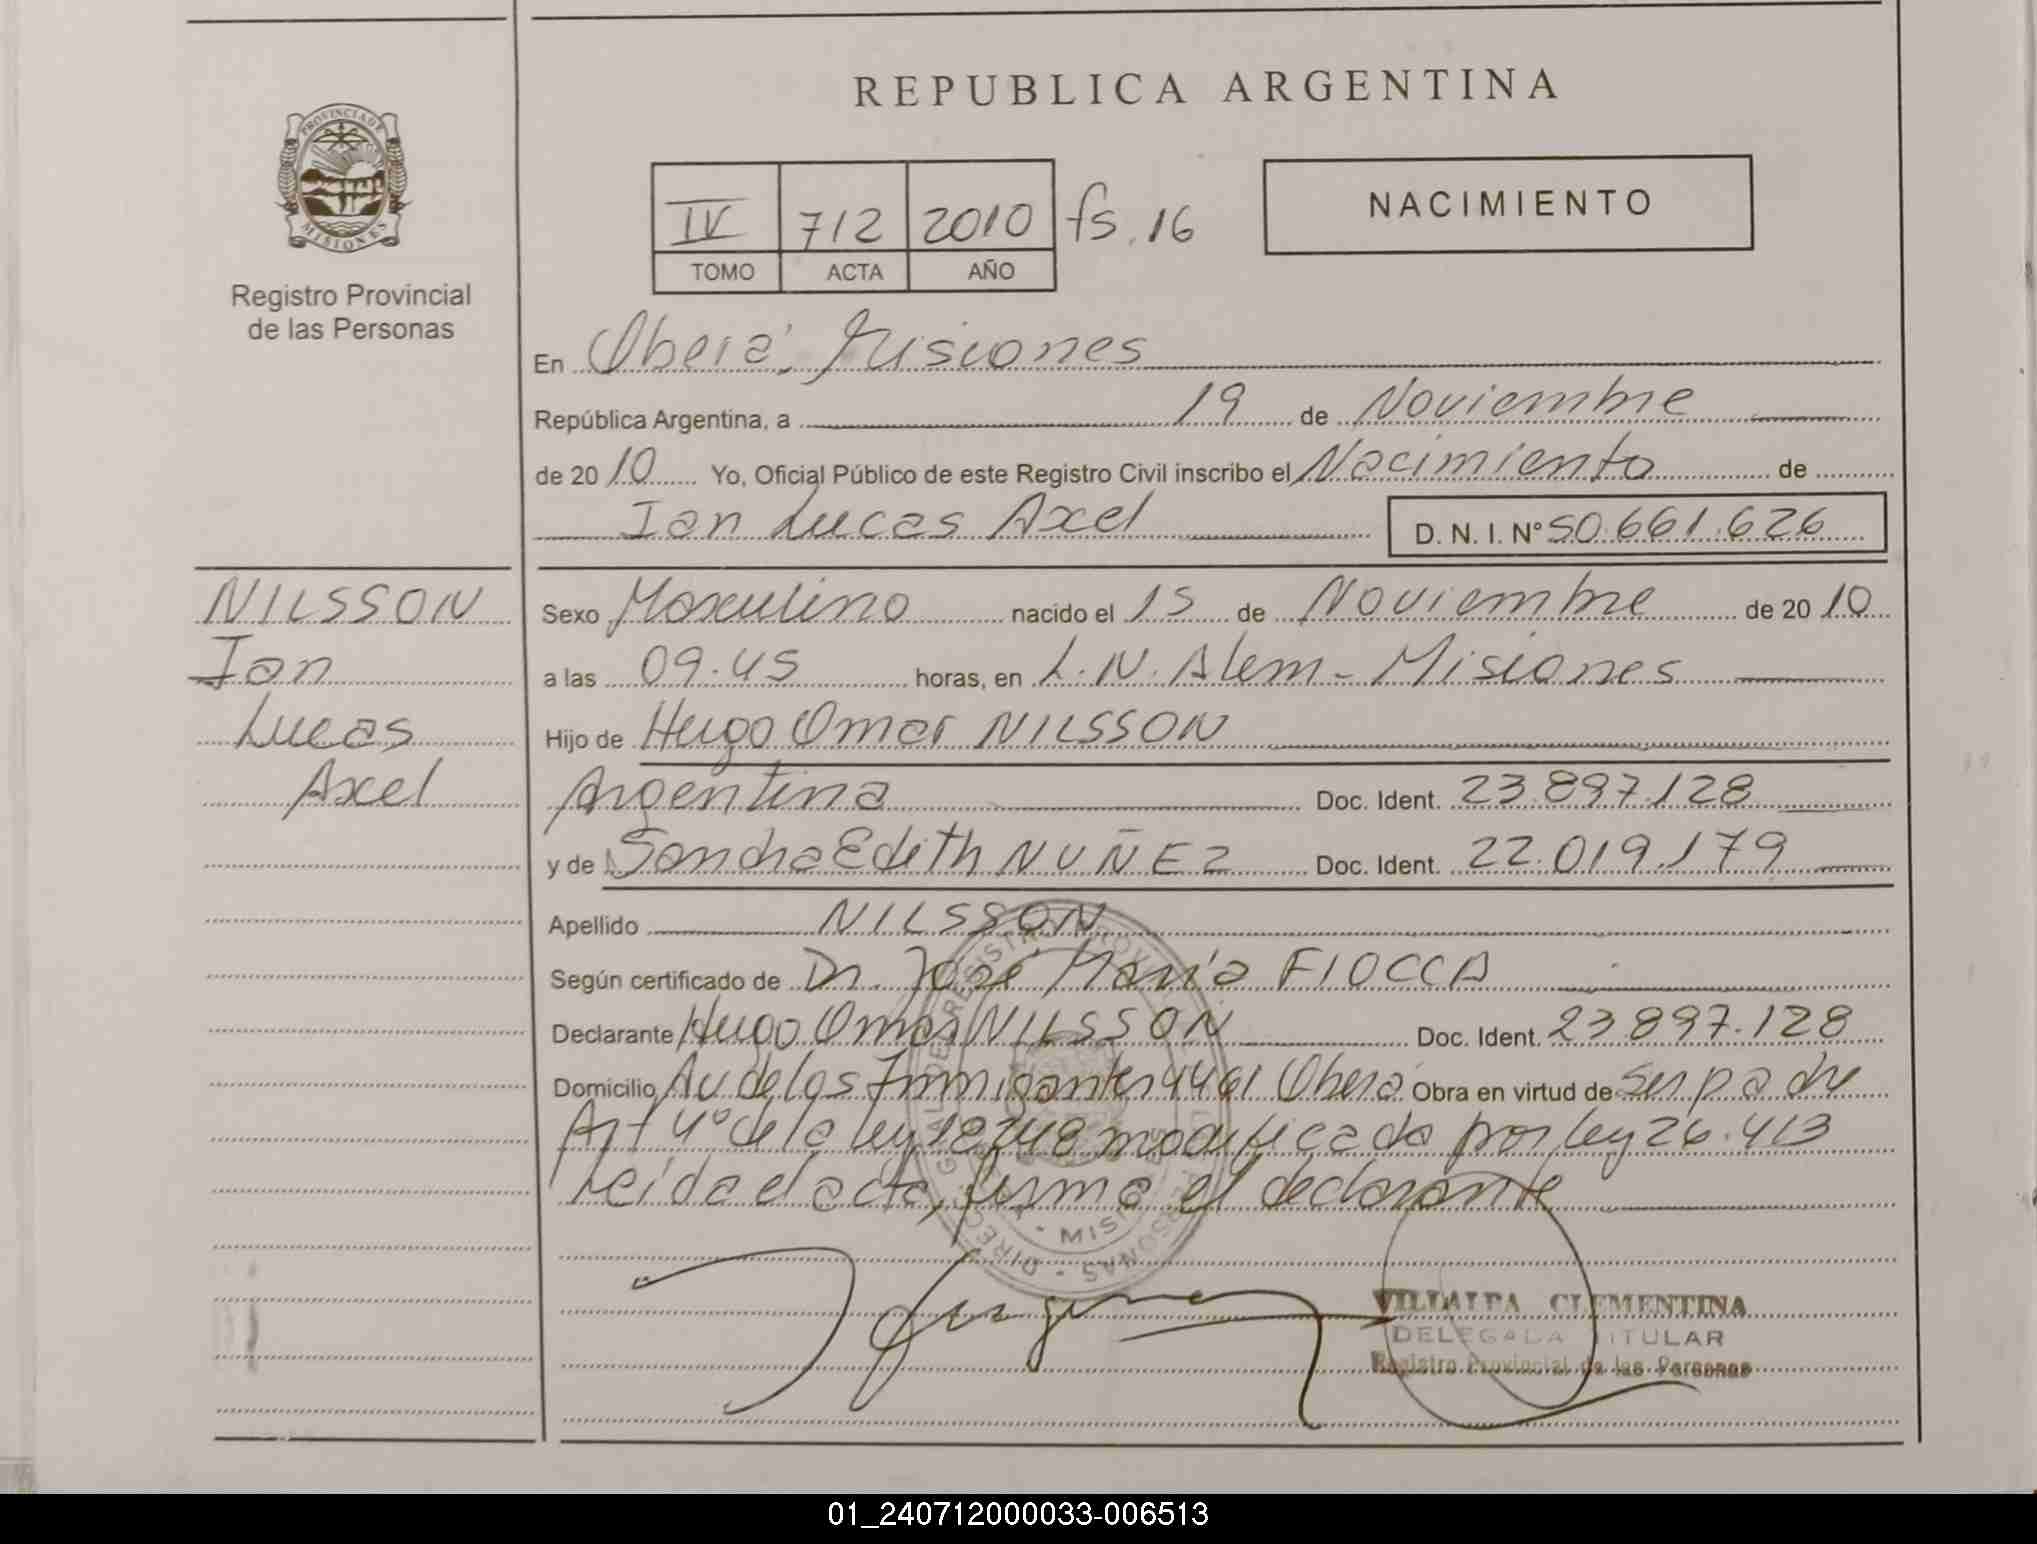 REPUBLICA ARGENTINA
PROVINCIA DE
MISIONES
Registro Provincial
de las Personas
IV 712 2010 fs. 16
TOMO ACTA AÑO
NACIMIENTO
En Oberá, Misiones
República Argentina, a 19 de Noviembre
de 20 10 Yo, Oficial Público de este Registro Civil inscribo el Nacimiento de
Ian Lucas Axel D. N. I. Nº 50.661.626
NILSSON
Ian
Lucas
Axel
Sexo Masculino nacido el 15 de Noviembre de 20 10
a las 09.45 horas, en L.N. Alem - Misiones
Hijo de Hugo Omar NILSSON
Argentina Doc. Ident. 23.897.128
y de Sandra Edith NUÑEZ Doc. Ident. 22.019.179
Apellido NILSSON
Según certificado de Dr. José María FIOCCA
Declarante Hugo Omar NILSSON Doc. Ident. 23.897.128
Domicilio Av de los Inmigantes 4461 Oberá Obra en virtud de Ser padre
Art 4º de la ley 18248 modificada por ley 26.413
Leída el acta, firma el declarante
VILLALBA CLEMENTINA
DELEGADA TITULAR
Registro Provincial de las Personas
01_240712000033-006513